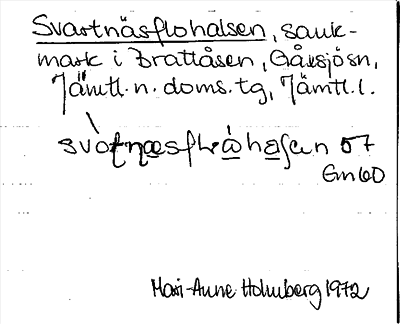 Svartnäsflohalsen, sank-
mark i Brattåsen, Gåxsjösn,
Jämtl. n. doms. tg, Jämtl. l.
07
Gm60
Mari-Anne Holmberg 1972